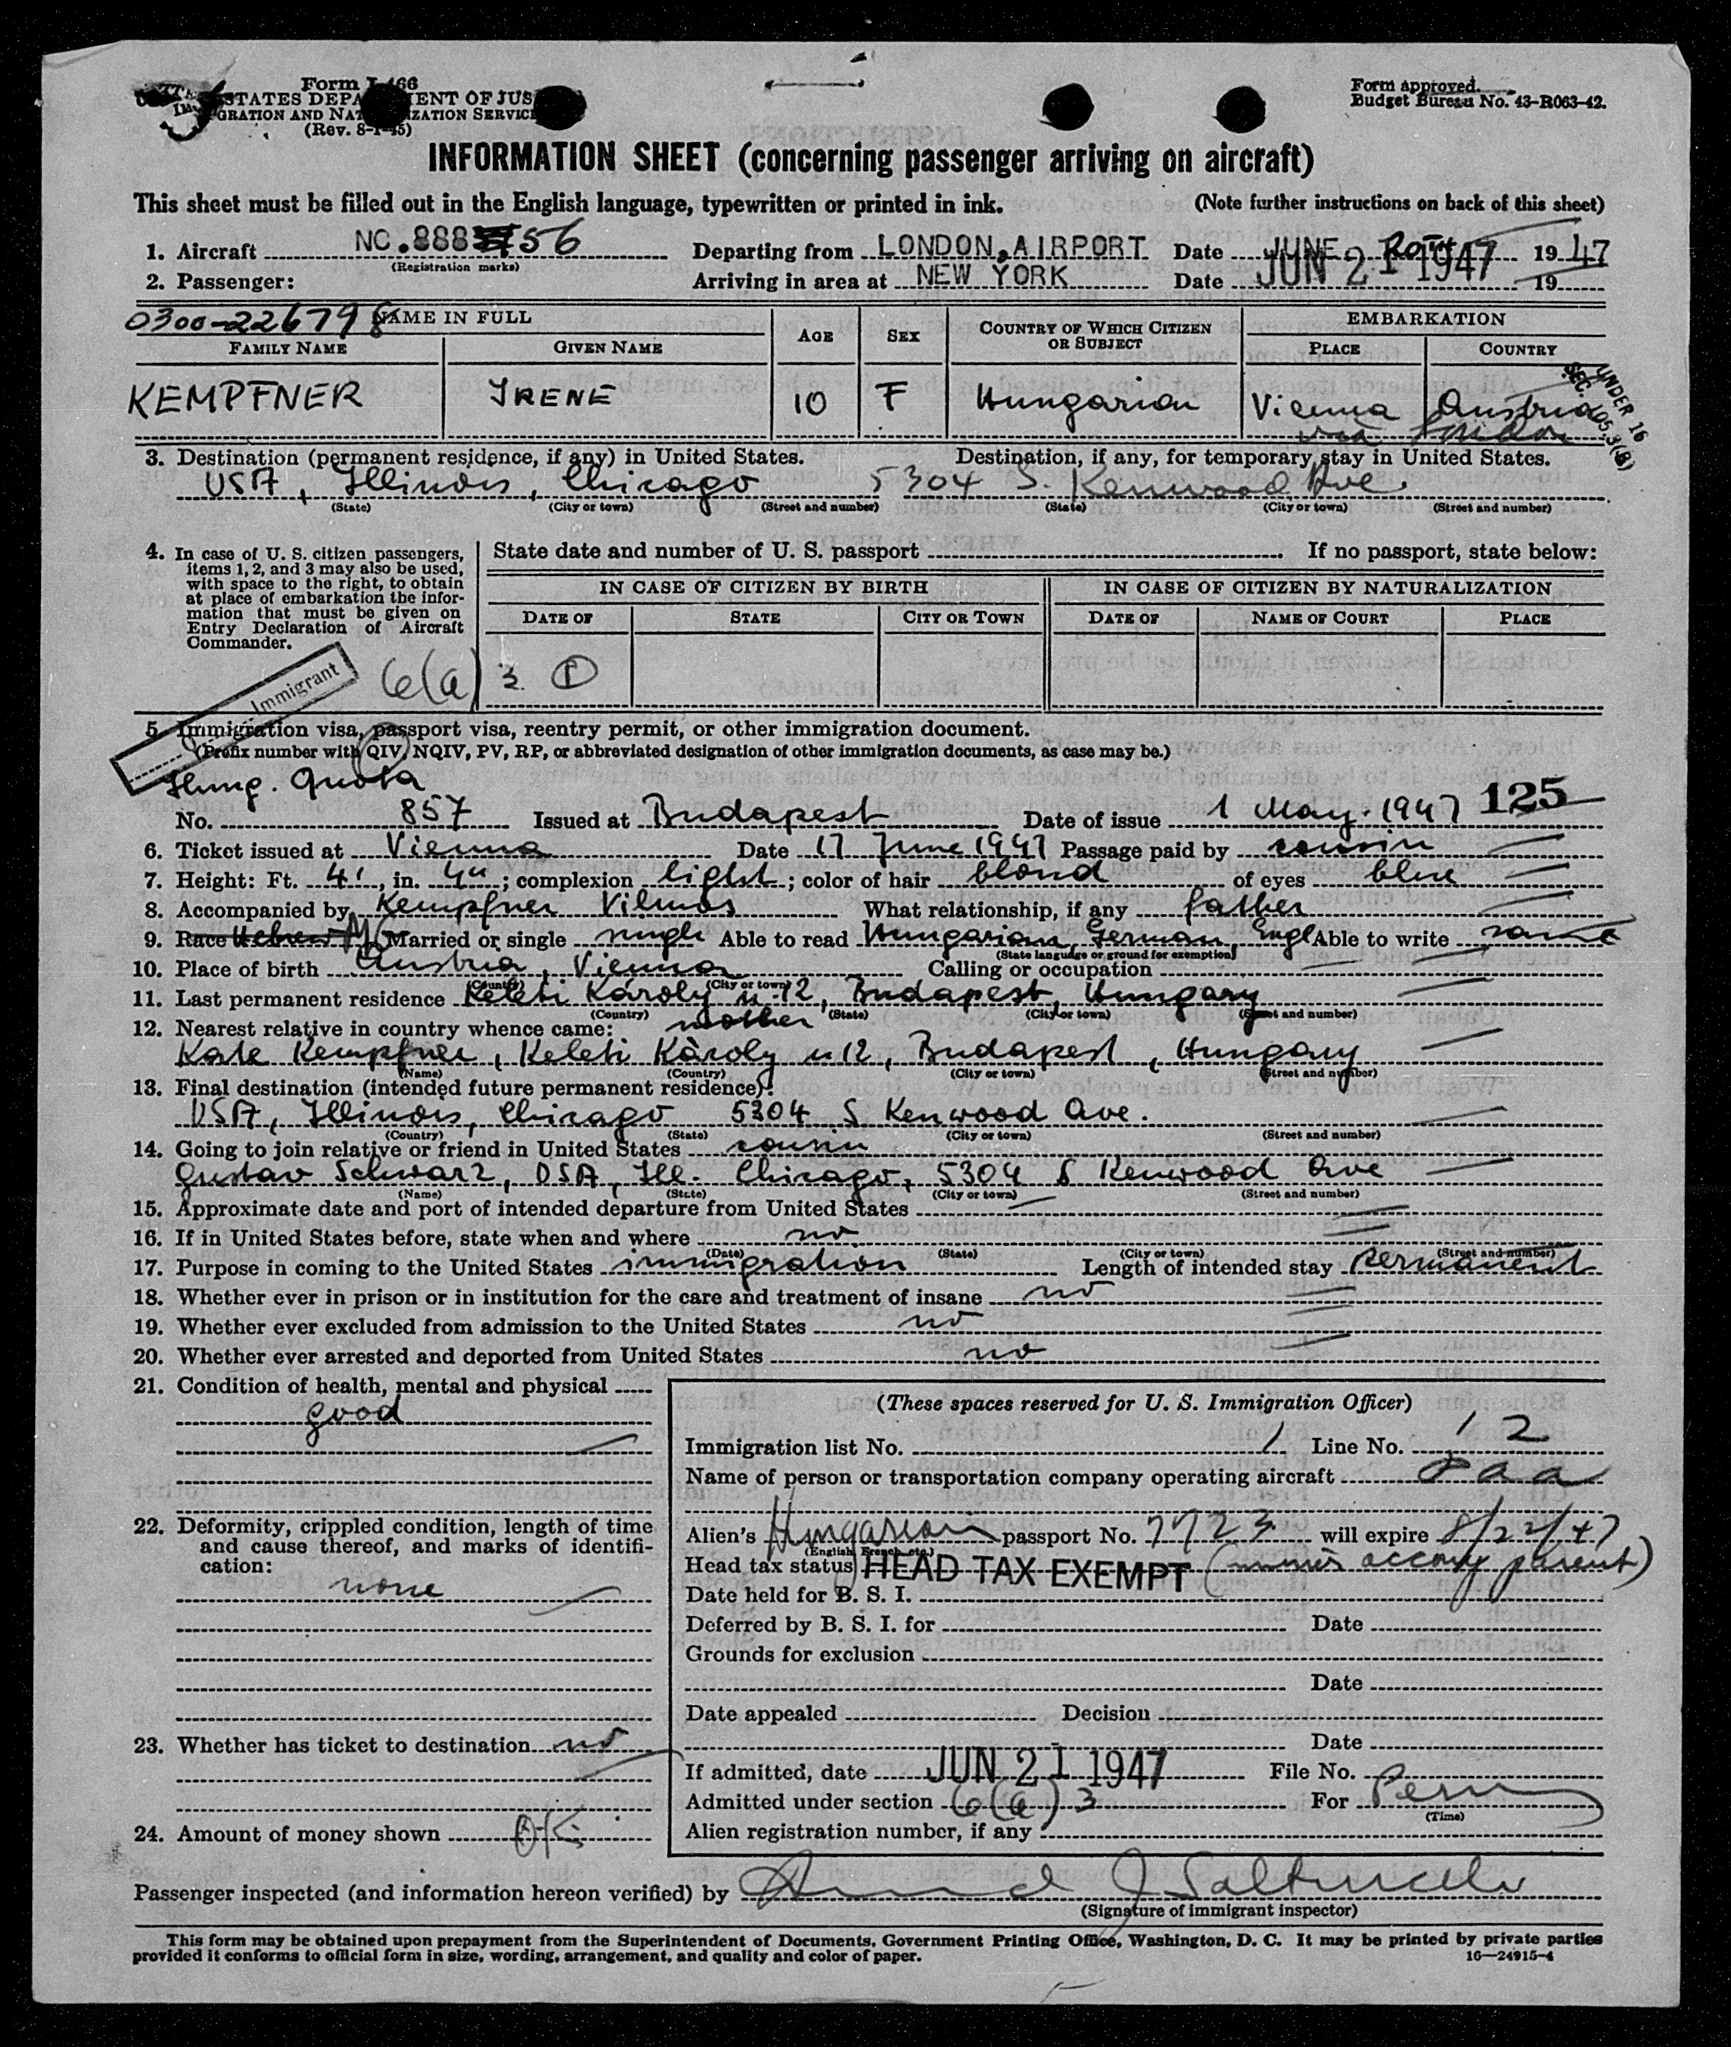 Form I-466
STATES DEPARTMENT OF JUS
GRATION AND NATURALIZATION SERVICE
(Rev. 8-1-45)
Form approved.
Budget Bureau No. 43-R063-42.
INFORMATION SHEET (concerning passenger arriving on aircraft)
This sheet must be filled out in the English language, typewritten or printed in ink. (Note further instructions on back of this sheet)
1. Aircraft NC.888 56 Departing from LONDON AIRPORT Date JUNE 20TH 1947
(Registration marks)
2. Passenger: Arriving in area at NEW YORK Date JUN 21 1947 19
0300-226798
NAME IN FULL AGE SEX COUNTRY OF WHICH CITIZEN OR SUBJECT EMBARKATION
FAMILY NAME GIVEN NAME PLACE COUNTRY
KEMPFNER IRENE 10 F Hungarian Vienna Austria
via London
UNDER 16
SEC. 105.3(B)
3. Destination (permanent residence, if any) in United States. Destination, if any, for temporary stay in United States.
USA, Illinois, Chicago 5304 S. Kenwood Ave.
(State) (City or town) (Street and number) (State) (City or town) (Street and number)
4. In case of U. S. citizen passengers, items 1, 2, and 3 may also be used, with space to the right, to obtain at place of embarkation the information that must be given on Entry Declaration of Aircraft Commander.
State date and number of U. S. passport If no passport, state below:
IN CASE OF CITIZEN BY BIRTH IN CASE OF CITIZEN BY NATURALIZATION
DATE OF STATE CITY OR TOWN DATE OF NAME OF COURT PLACE
Immigrant 6(a) 3 P
5. Immigration visa, passport visa, reentry permit, or other immigration document.
(Prefix number with QIV, NQIV, PV, RP, or abbreviated designation of other immigration documents, as case may be.)
Hung. Quota
No. 857 Issued at Budapest Date of issue 1 May. 1947 125
6. Ticket issued at Vienna Date 17 June 1947 Passage paid by cousin
7. Height: Ft. 4', in. 4"; complexion light; color of hair blond of eyes blue
8. Accompanied by Kempfner Vilmos What relationship, if any father
9. Race Hebrew Married or single single Able to read Hungarian, German, Engl Able to write same
(State language or ground for exemption)
10. Place of birth Austria, Vienna Calling or occupation
(Country) (City or town)
11. Last permanent residence Keleti Károly u. 12, Budapest, Hungary
(Country) (State) (City or town) (Street and number)
12. Nearest relative in country whence came: mother
Kate Kempfner, Keleti Károly u 12, Budapest, Hungary
(Name) (Country) (City or town) (Street and number)
13. Final destination (intended future permanent residence):
USA, Illinois, Chicago 5304 S Kenwood Ave.
(Country) (State) (City or town) (Street and number)
14. Going to join relative or friend in United States cousin
Gustav Schwarz, USA, Ill. Chicago, 5304 S Kenwood Ave
(Name) (State) (City or town) (Street and number)
15. Approximate date and port of intended departure from United States
16. If in United States before, state when and where no
(Date) (State) (City or town) (Street and number)
17. Purpose in coming to the United States immigration Length of intended stay permanent
18. Whether ever in prison or in institution for the care and treatment of insane no
19. Whether ever excluded from admission to the United States no
20. Whether ever arrested and deported from United States no
21. Condition of health, mental and physical
good
22. Deformity, crippled condition, length of time and cause thereof, and marks of identification:
none
23. Whether has ticket to destination no
24. Amount of money shown OK
(These spaces reserved for U. S. Immigration Officer)
Immigration list No. 1 Line No. 12
Name of person or transportation company operating aircraft P a a
Alien's Hungarian passport No. 7723 will expire 8/22/47
(English, French, etc.)
Head tax status HEAD TAX EXEMPT (minor accomp parent)
Date held for B. S. I.
Deferred by B. S. I. for Date
Grounds for exclusion
Date
Date appealed Decision
Date
If admitted, date JUN 21 1947 File No.
Admitted under section 6(a) 3 For Perm
(Time)
Alien registration number, if any
Passenger inspected (and information hereon verified) by
(Signature of immigrant inspector)
This form may be obtained upon prepayment from the Superintendent of Documents, Government Printing Office, Washington, D. C. It may be printed by private parties
provided it conforms to official form in size, wording, arrangement, and quality and color of paper. 16—24915-4